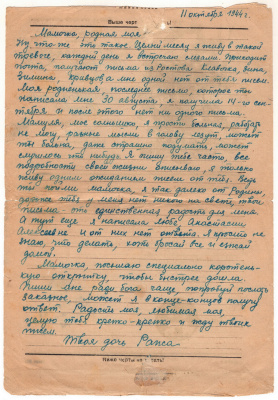 Выше черт
11 октября 1944 г.
Мамочка, родная моя
Ну что же это такое Целый месяц я живу в такой
тревоге, каждый день я встречаю слезами. Приходит
почта, получают письма из Ростова Маечка Вана,
Зилина Кравцова а мне одной нет от тебя писем.
Моя родненькая последнее письмо, которое ты
написала мне 30 августа, я получила 14-го сен-
тября и после этого нет ни одного письма.
Мамуля, мое солнышко, я просто больная, работать
не могу, разные мысли в голову лезут, может
ты больна, даже страшно подумать, может
случилось что нибудь. Я пишу тебе часто, все
подробности своей жизни описываю, я только
живу одними ожиданиями писем от тебя. Ведь
ты пойми мамочка, я так далеко от Родины,
дороже тебя у меня нет никого на свете, твои
письма это единственная радость для меня
а тут еще я написала Любе, Анастасии
Алексеевне и от них нет ответа. Я просто не
знаю, что делать, хоть бросай все и езжай
домой.
Мамочка, посылаю специально коротень-
кую открытку, чтобы быстрее дошла.
Пиши мне ради бога чаще, попробуй послать
заказное, может я в конце-концов получу
ответ. Радость моя, любимая моя,
целую тебя крепко-крепко и жду твоих
писем.
Твоя дочь Раиса
Ниже черты не писать!